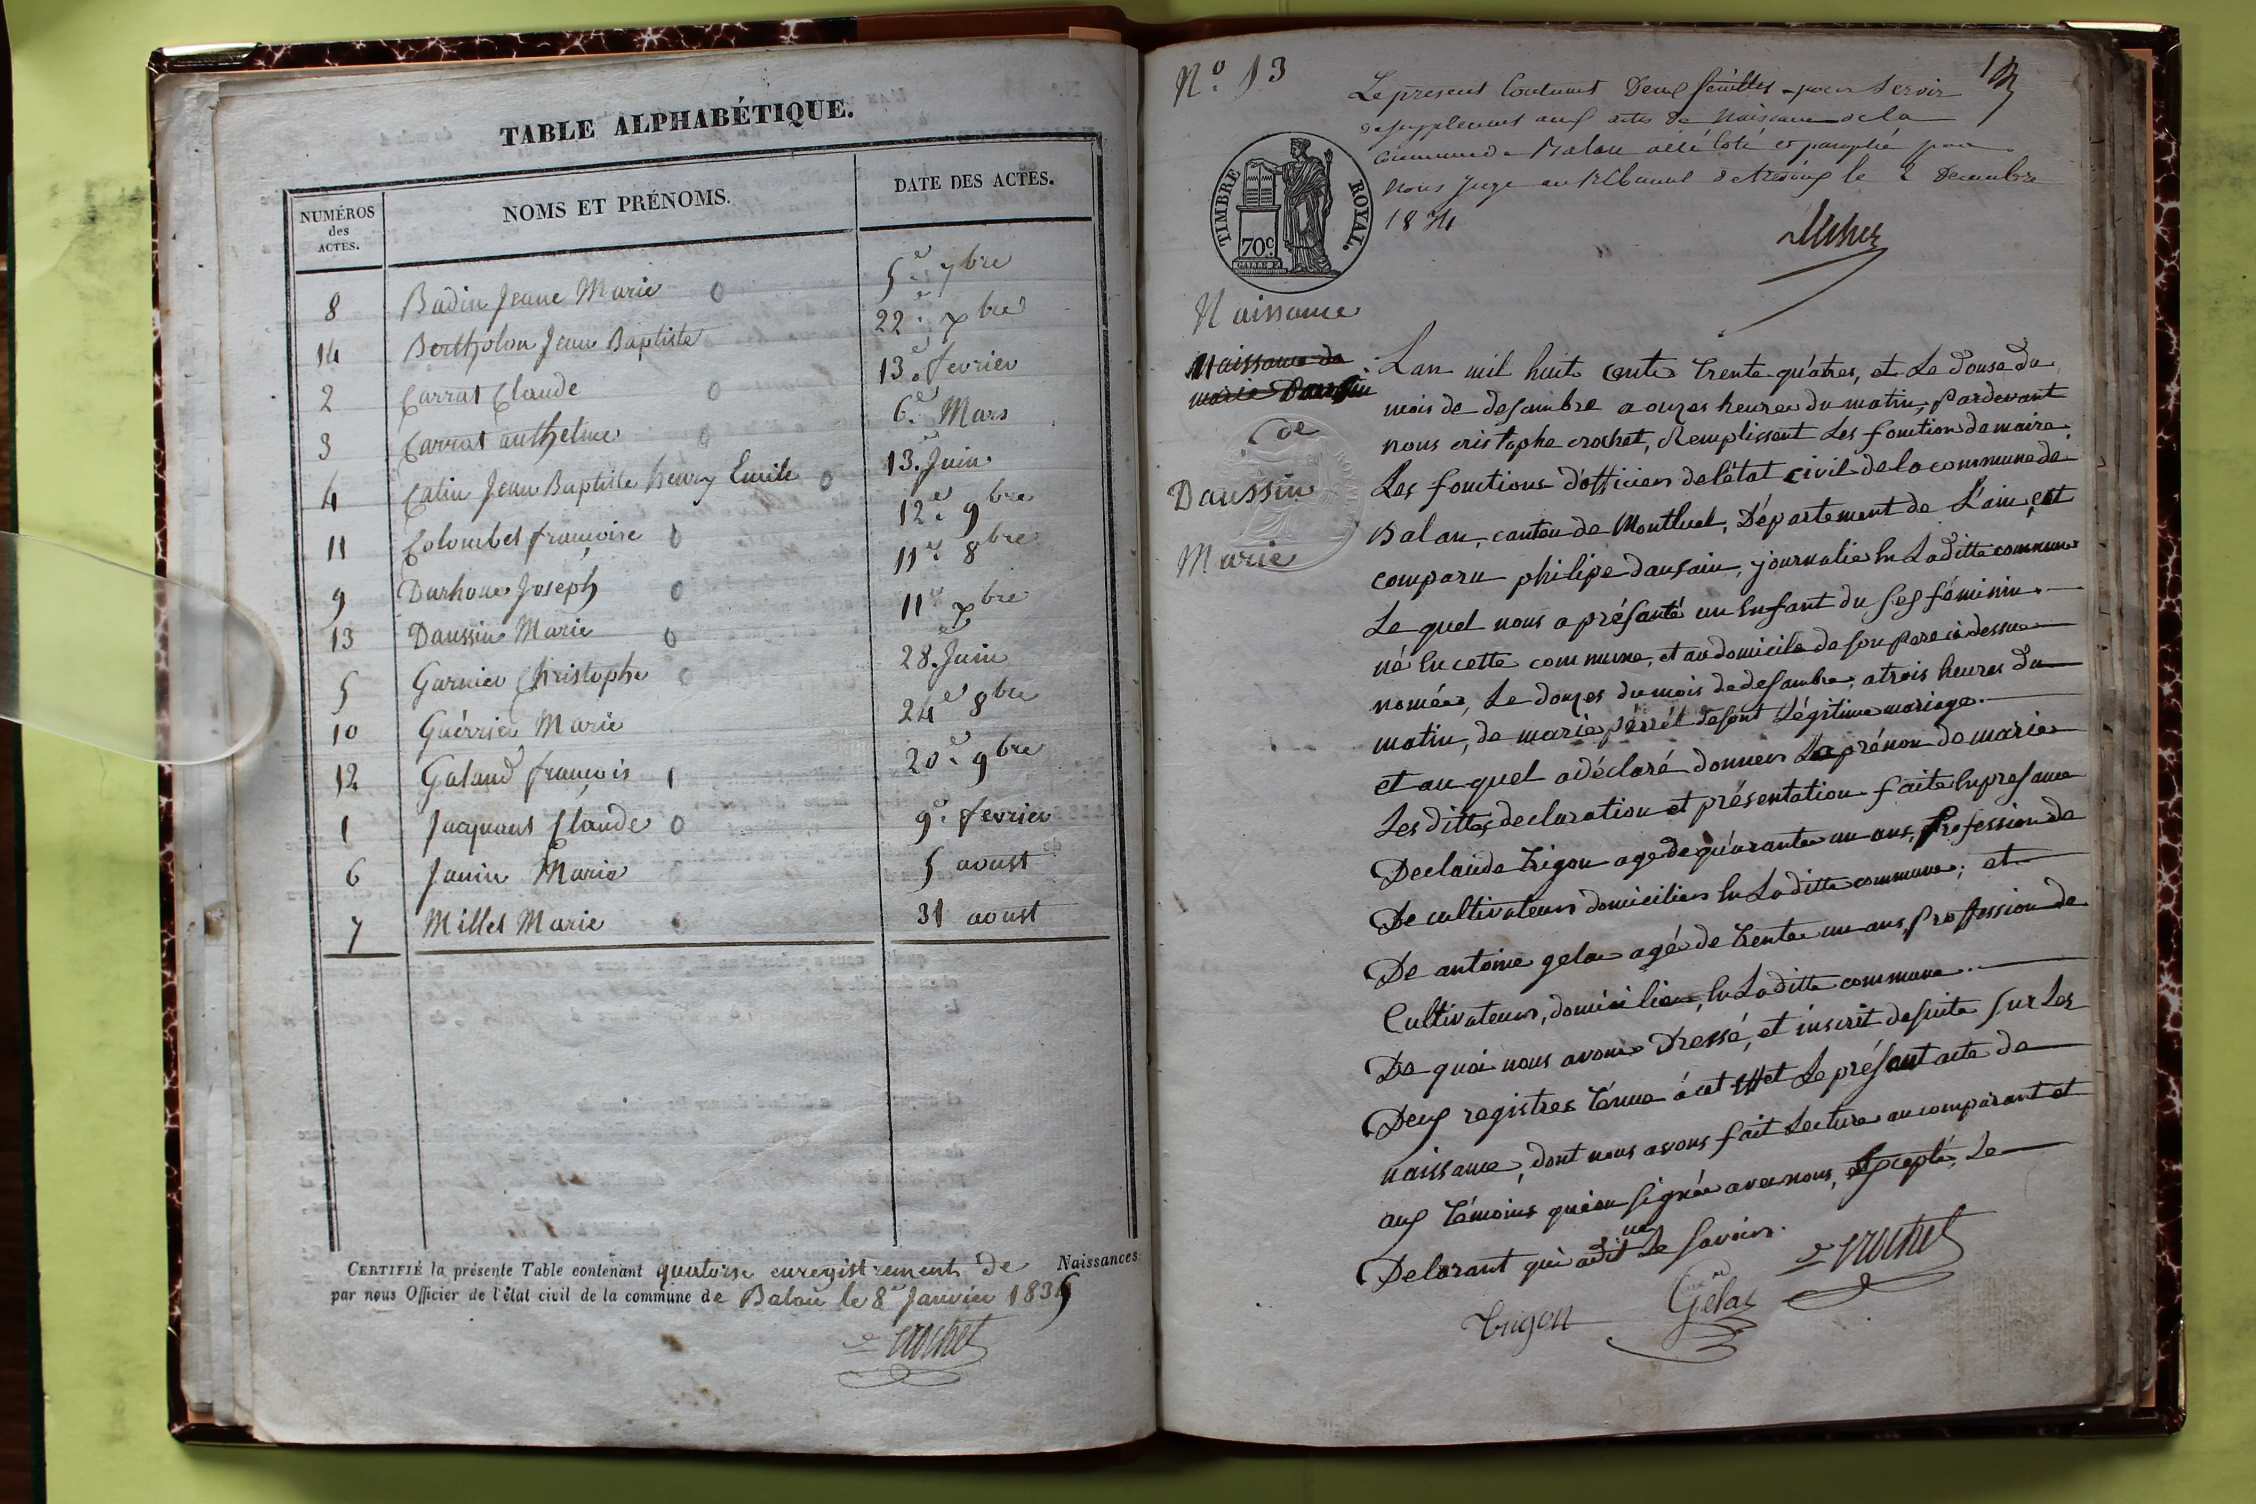 TABLE ALPHABÉTIQUE.
NUMÉROS des ACTES. NOMS ET PRÉNOMS. DATE DES ACTES.
8 Badin Jeane Marie 0 5e. 7bre
14 Bertholon Jean Baptiste 22e. xbre
2 Carrat Claude 0 13e. fevrier
3 Carrat anthelme 0 6e. Mars
4 Catin Jean Baptiste henry Emile 0 13e. Juin
11 Colombet françoise 0 12e. 9bre
9 Durhone Joseph 0 11e. 8bre
13 Daussin Marie 0 11e. xbre
5 Garnier Christophe 0 28e. Juin
10 Guérrier Marie 24e 8bre
12 Galand françois 1 20e. 9bre
1 Jacquant Claude 0 9e. fevrier
6 Janin Marie 5 aoust
7 Millet Marie 31 aoust
CERTIFIÉ la présente Table contenant quatorse enregistrement de Naissances
par nous Officier de l'état civil de la commune de Balan le 8e Janvier 1835
crochet
No. 13
Le present Contenant Deux feuilles pour Servir
de supplement aux actes de Naissance de la
Commune de Balan a été Coté et paraphé par
Nous Juge au tribunal de Trévoux le 2 Decembre
1834
TIMBRE ROYAL.
70c.
Naissance
Naissance de
marie Daussin
de
Daussin
Marie
L'an mil huit cents trente quatres, et Le douse du
mois de desambre a onzes heures du matin, Pardevant
nous cristophe crochet, Remplissent Les fonction de maire
Les fonctions d'officier de létat civil de la commune de
Balan, canton de Montluel, Département de L'ain, est
comparu philipe dausain, journalie En Laditte commune
Le quel nous a présanté un Enfant du sex féminin.
né En cette commune, et au domicile de son Pere ci dessue
nomée, Le douzes du mois de desambre, a trois heures du
matin, de marie pérrét desont Légitime mariage.
et au quel a déclaré donner Le prénon de marie
Les dittes declaration et présentation faite En presance
De claude trigon age de quarante un ans, Profession de
De cultivateur domicilier En Laditte commune; et
De antoine gelas agé de trente un ans, Proffession de
Cultivateur, domicilier, En Laditte commune.
De quoi nous avons Dressé, et inscrit de suite sur Les
Deux registres ténue à cet Effet Le présant acte de
naissance, dont nous avons fait Lecture au comparant et
aux témoins qui on signée avec nous, Excepté, Le
Delarant qui a dit ne Le Savoir.
trigon Gelas crochet